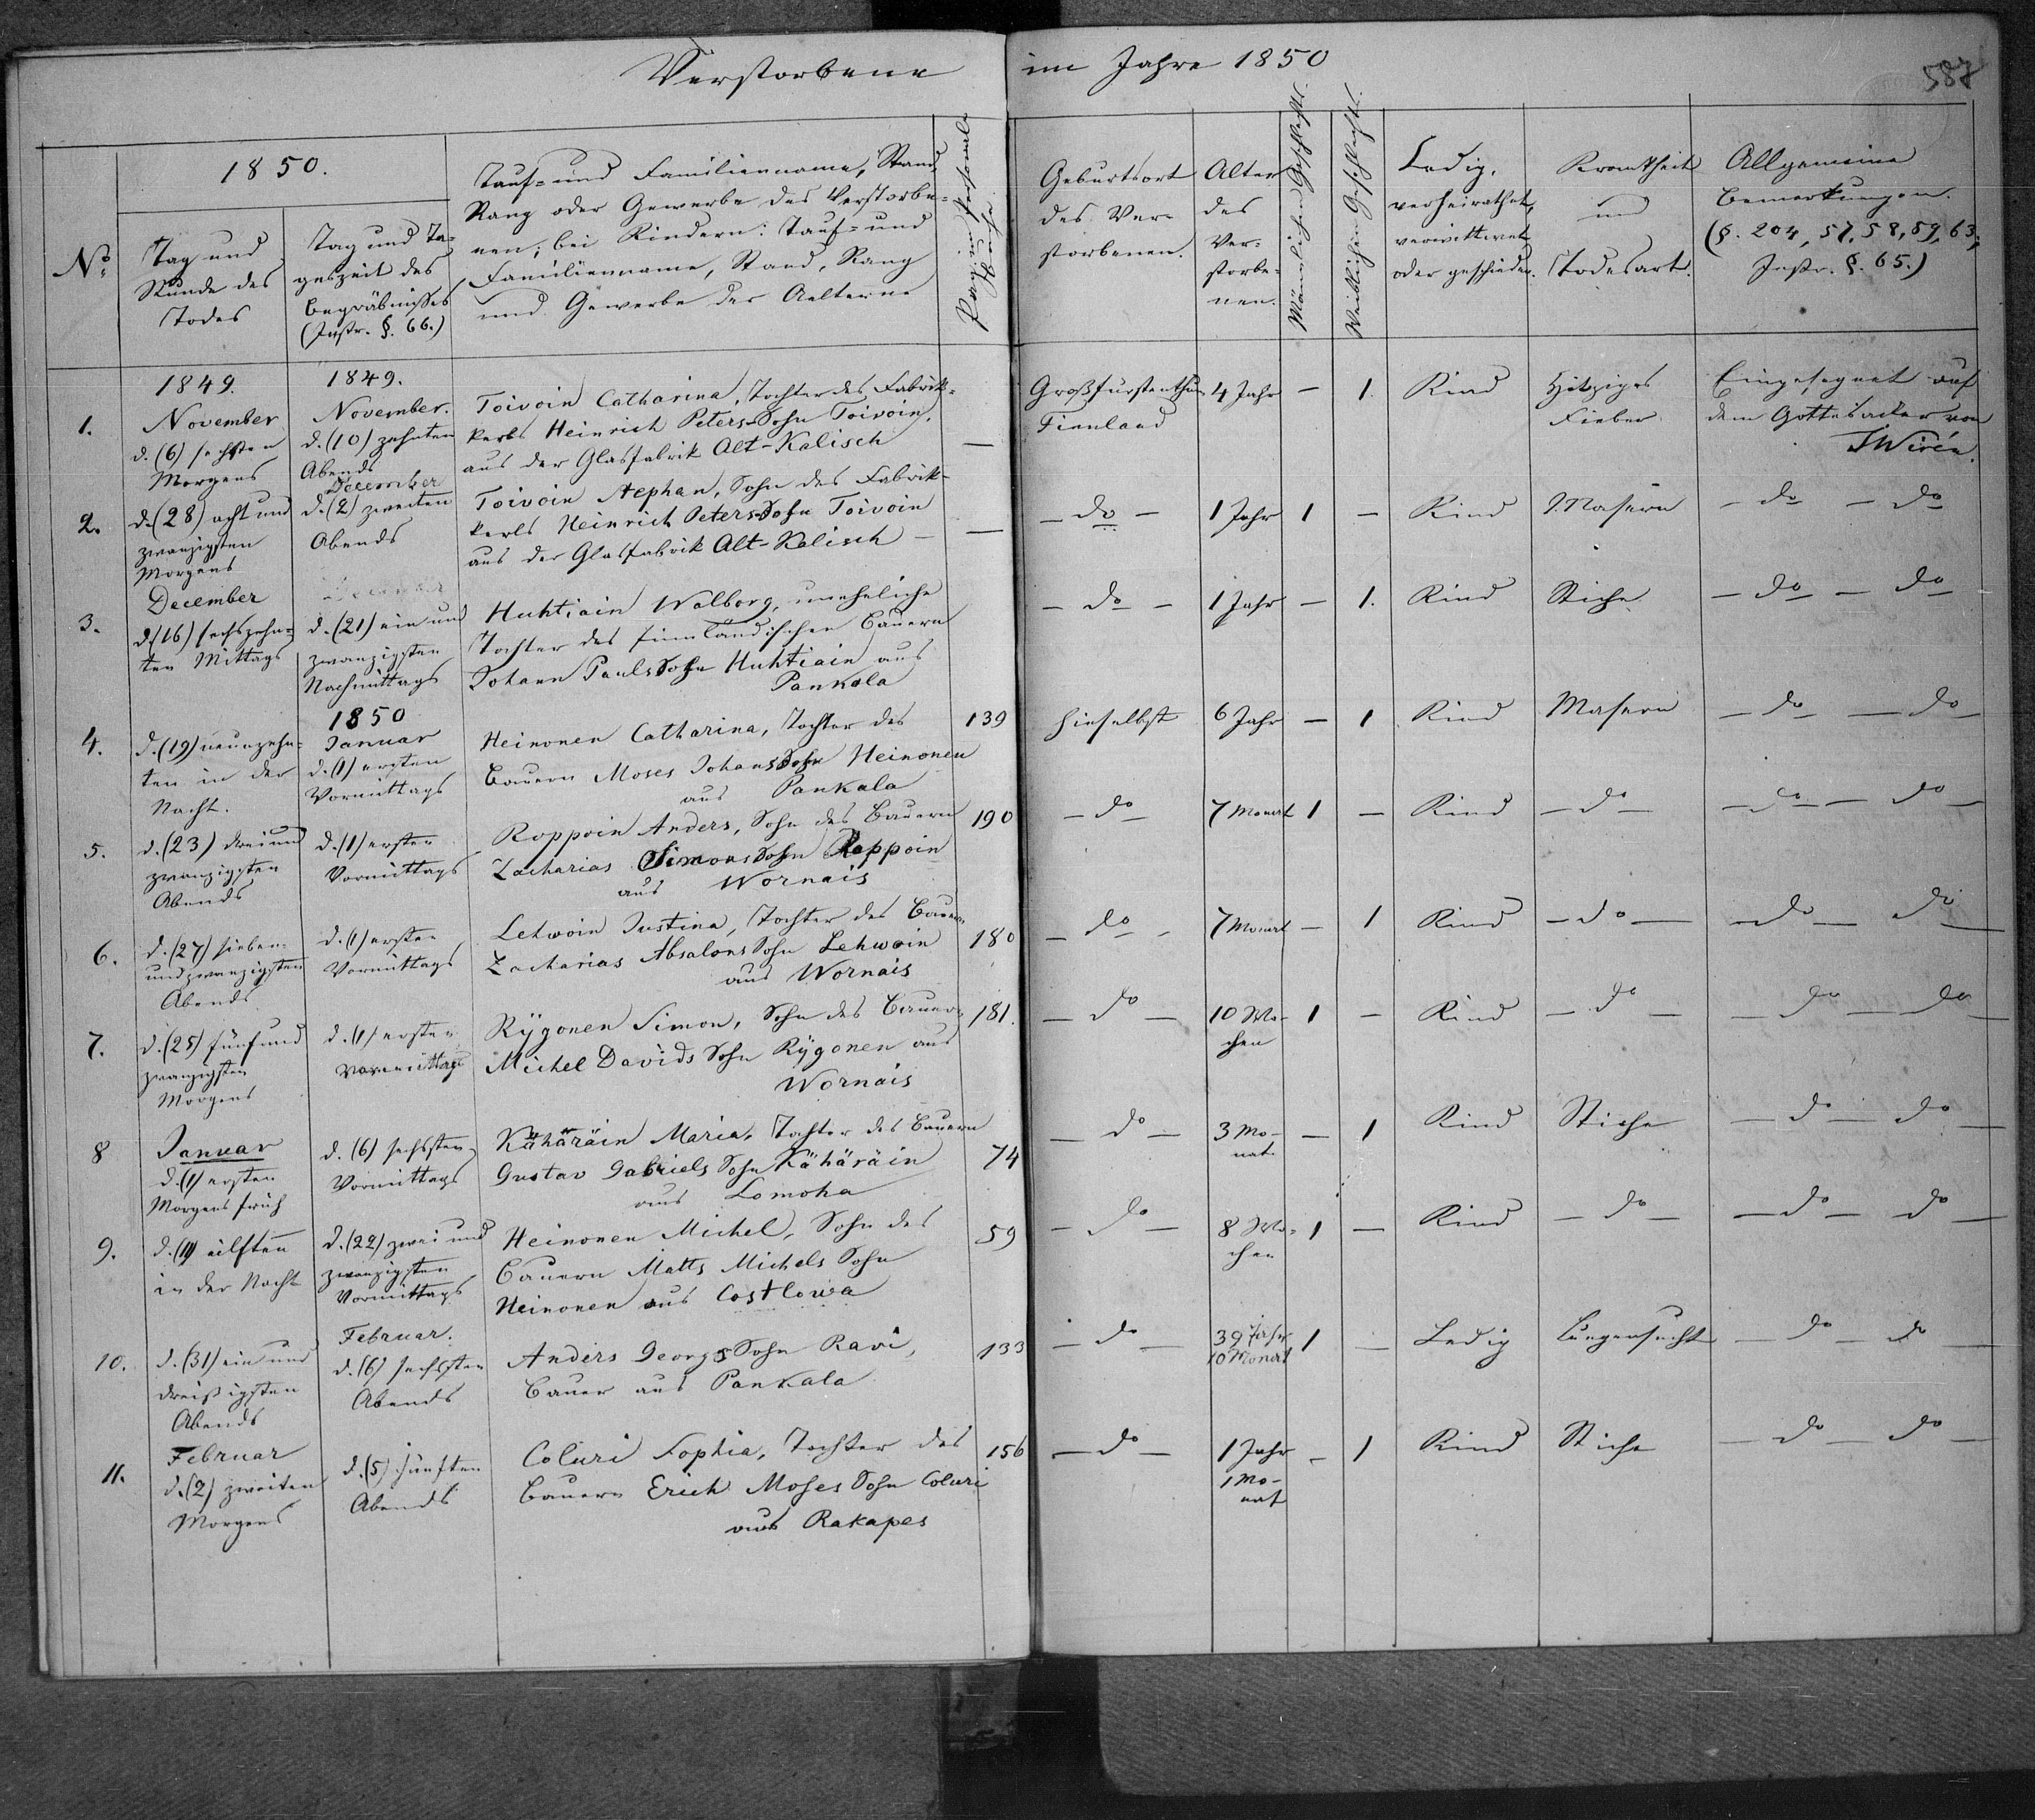 Verstorbene im Jahre 1850
587
1850.
No:
Tag und
Stunde des
Todes
Tag und Ta=
geszeit des
Begräbnisses
(Instr. §. 66.)
Tauf= und Familienname, Stand,
Rang oder Gewerbe des Verstorbe=
nen; bei Kindern: Tauf= und
Familienname, Stand, Rang
und Gewerbe der Aelternn
Pag: im Personal=
buche
Geburtsort
des Ver=
storbenen.
Alter
des
Ver=
storbe=
nen.
Männlichen Geschlechts.
Weiblichen Geschlechts.
Ledig,
verheirathet,
verwittwet
oder geschieden.
Krankheit
und
Todesart.
Allgemeine
Bemerkungen.
(§. 204, 57, 58, 59, 63,
Instr. §. 65.)
1.
1849.
November
d. (6) sechsten
Morgens
1849.
November.
d. (10) zehnten
Abends
Toivoin Catharina, Tochter des Fabrik=
kerls Heinrich Peters Sohn Toivoin,
aus der Glasfabrik Alt-Kalisch
—
Großfürstenthum
Finnland
4 Jahr
—
1.
Kind
Hitziges
Fieber
Eingesegnet auf
dem Gottesacker von
Wirén.
2.
d. (28) acht und
zwanzigsten
Morgens
December
d. (2) zweiten
Abends
Toivoin Stephan, Sohn des Fabrik=
kerls Heinrich Peters Sohn Toivoin
aus der Glasfabrik Alt-Kalisch —
—
— do —
1 Jahr
1
—
Kind
Masern
— do — do
3.
December
d. (16) sechszehn=
ten Mittags
December
d. (21) ein und
zwanzigsten
Nachmittags
Huhtiain Walborg, uneheliche
Tochter des finnländischen Bauern
Johann Pauls Sohn Huhtiain aus
Pankala
— do —
1 Jahr
—
1.
Kind
Stiche
— do — do
4.
d. (19) neunzehn=
ten in der
Nacht.
1850
Januar
d. (1) ersten
Vormittags
Heinonen Catharina, Tochter des
Bauern Moses Johans Sohn Heinonen
aus Pankala
139
Hieselbst
6 Jahr
—
1
Kind
Masern
— do — do —
5.
d. (23) drei und
zwanzigsten
Abends
d. (1) ersten
Vormittags
Roppoin Anders, Sohn des Bauern
Zacharias Simons Sohn Roppoin
aus Wornais
190
— do —
7 Monat
1
—
Kind
— do —
— do — do —
6.
d. (27) sieben=
und zwanzigsten
Abends
d. (1) ersten
Vormittags
Lehwoin Justina, Tochter des Bauern
Zacharias Absalons Sohn Lehwoin
aus Wornais
180
— do —
7 Monat
—
1
Kind
— do —
— do — do —
7.
d. (25) fünf und
zwanzigsten
Morgens
d. (1) ersten
Vormittags
Rÿgonen Simon, Sohn des Bauern
Michel Davids Sohn Rÿgonen aus
Wornais
181.
— do —
10 Wo=
chen
1
—
Kind
— do —
— do — do —
8
Januar
d. (1) ersten
Morgens früh
d. (6) sechsten
Vormittags
Kähäräin Maria, Tochter des Bauern
Gustav Gabriels Sohn Kähäräin
aus Lomoha
74
— do —
3 Mo-
nat
—
1
Kind
Stiche
— do — do —
9.
d. (11) eilften
in der Nacht
d. (22) zwei und
zwanzigsten
Vormittags
Heinonen Michel, Sohn des
Bauern Matts Michels Sohn
Heinonen aus Costlowa
59
— do —
8 Wo=
chen
1
—
Kind
— do —
— do — do —
10.
d. (31) ein und
dreißigsten
Abends
Februar.
d. (6) sechsten
Abends
Anders Georgs Sohn Ravi,
Bauer aus Pankala
133
— do —
39 Jahr
10 Monat
1
—
Ledig
Lungensucht
— do — do —
11.
Februar
d. (2) zweiten
Morgens
d. (5) fünften
Abends
Coluri Sophia, Tochter des
Bauern Erich Moses Sohn Coluri
aus Rakapes
156
— do —
1 Jahr
1 Mo-
nat
—
1
Kind
Stiche
— do — do —